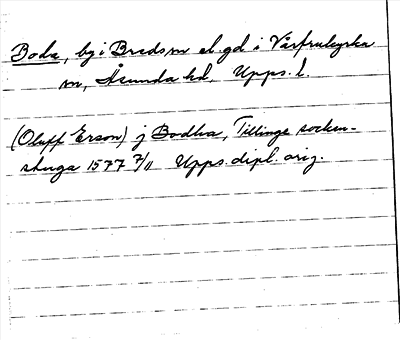 Boda, by i Breds sn el. gd i Vårfrukyrka
sn, Åsunda hd, Upps. l.
(Oluff Erson) j Bodha, Tillinge socken-
stuga 1577 7/11 Upps. dipl. orig.